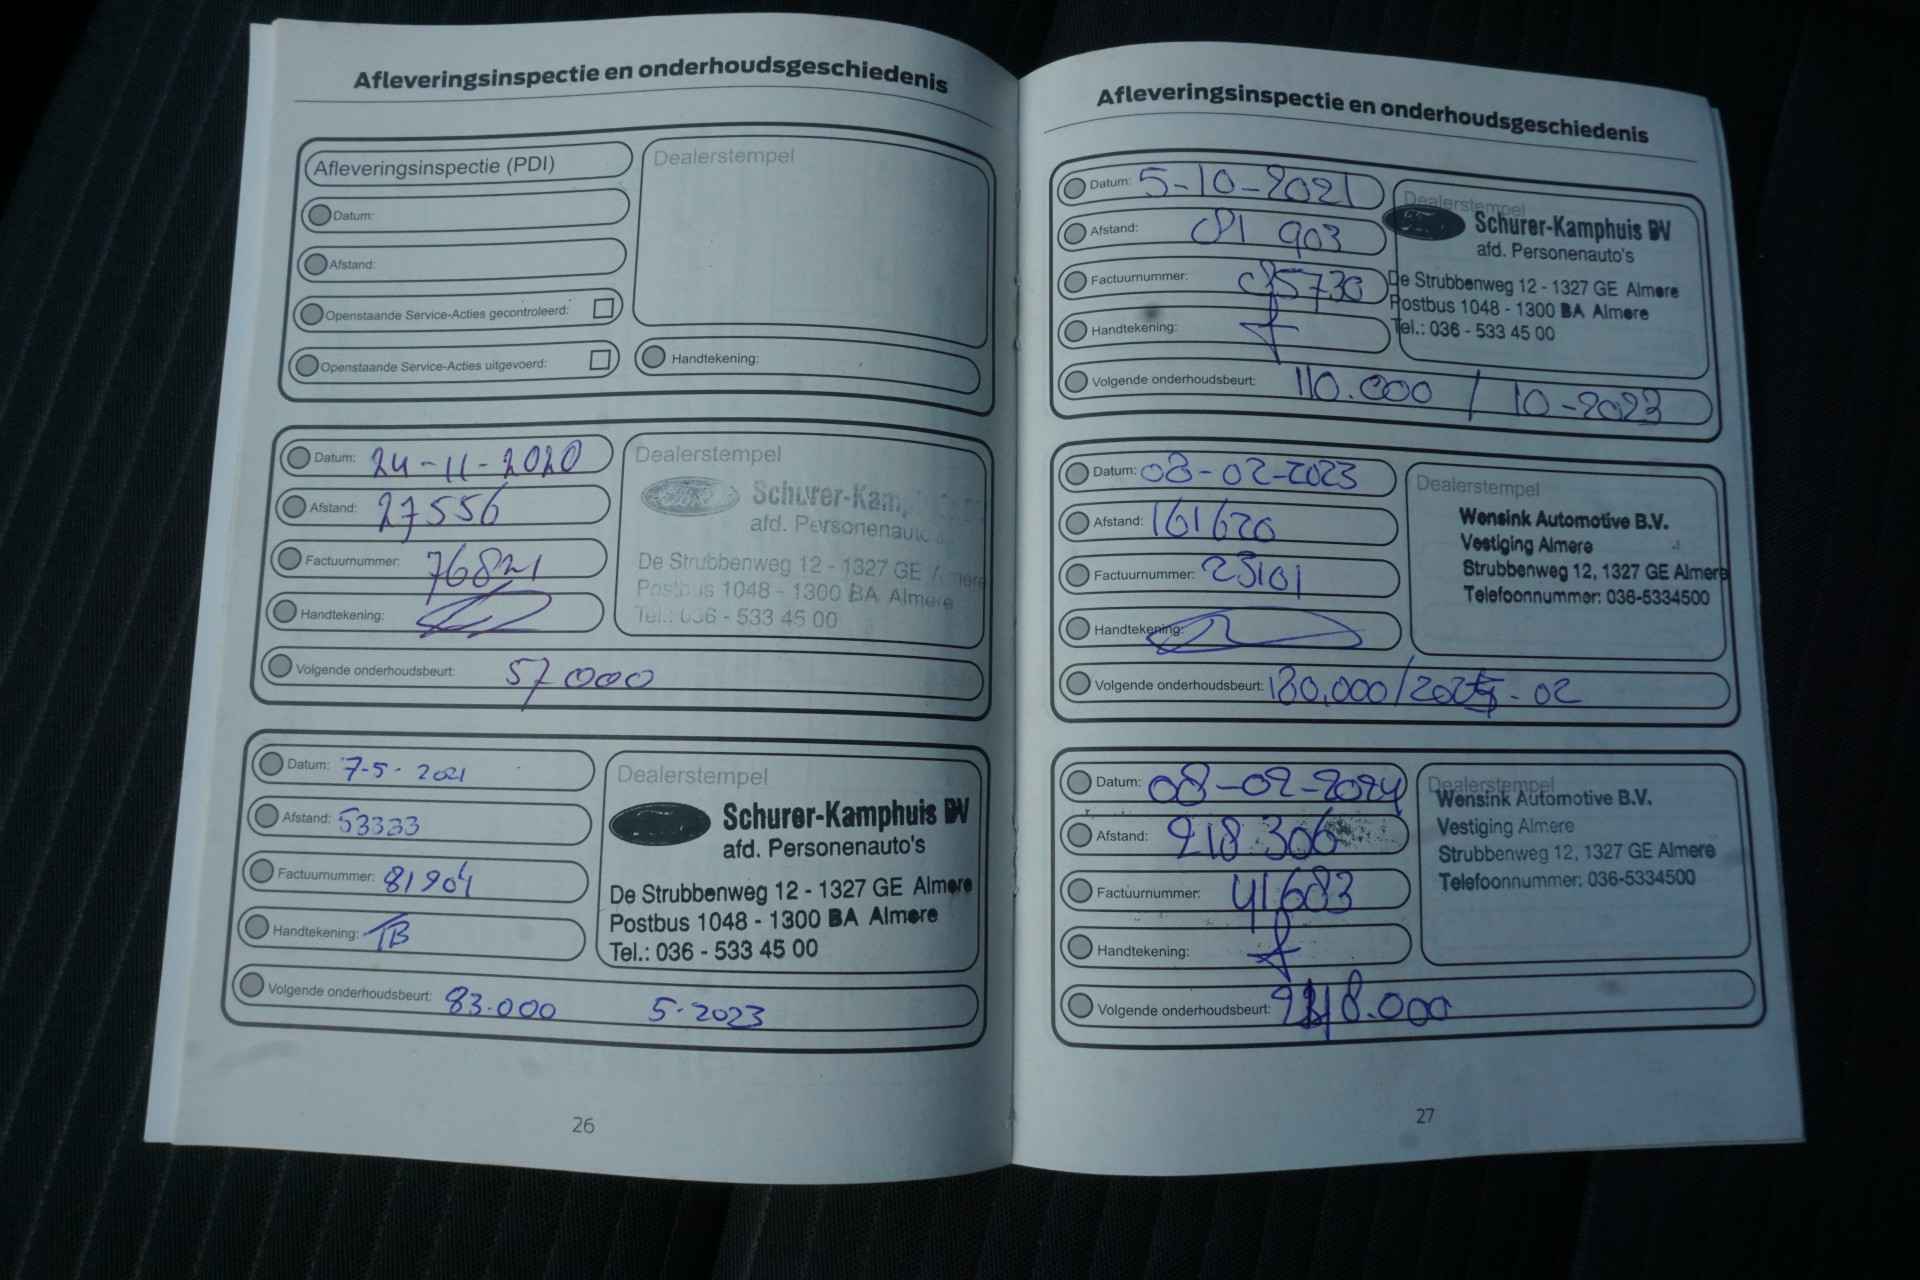 Afleveringsinspectie en onderhoudsgeschiedenis
Afleveringsinspectie (PDI)
Datum:
Afstand:
Openstaande Service-Acties gecontroleerd:
Openstaande Service-Acties uitgevoerd:
Dealerstempel
Handtekening:
Datum: 24-11-2020
Afstand: 27556
Factuurnummer: 76821
Handtekening:
Volgende onderhoudsbeurt: 57000
Dealerstempel
Schurer-Kam
afd. Personenauto
De Strubbenweg 12 - 1327 GE Almere
Postbus 1048 - 1300 BA Almere
Tel.: 036 - 533 45 00
Datum: 7-5-2021
Afstand: 53333
Factuurnummer: 81904
Handtekening: TB
Volgende onderhoudsbeurt: 83.000 5-2023
Dealerstempel
Schurer-Kamphuis BV
afd. Personenauto's
De Strubbenweg 12 - 1327 GE Almere
Postbus 1048 - 1300 BA Almere
Tel.: 036 - 533 45 00
26
Afleveringsinspectie en onderhoudsgeschiedenis
Datum: 5-10-2021
Afstand: 81 903
Factuurnummer: 85730
Handtekening:
Volgende onderhoudsbeurt: 110.000 / 10-2023
Dealerstempel
Schurer-Kamphuis BV
afd. Personenauto's
De Strubbenweg 12 - 1327 GE Almere
Postbus 1048 - 1300 BA Almere
Tel.: 036 - 533 45 00
Datum: 08-02-2023
Afstand: 161620
Factuurnummer: 23101
Handtekening:
Volgende onderhoudsbeurt: 180.000/2025-02
Dealerstempel
Wensink Automotive B.V.
Vestiging Almere
Strubbenweg 12, 1327 GE Almere
Telefoonnummer: 036-5334500
Datum: 08-02-2024
Afstand: 218 306
Factuurnummer: 41683
Handtekening:
Volgende onderhoudsbeurt:
Dealerstempel
Wensink Automotive B.V.
Vestiging Almere
Strubbenweg 12, 1327 GE Almere
Telefoonnummer: 036-5334500
27